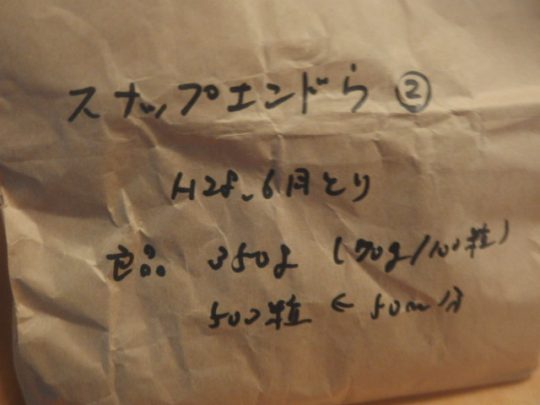 スナップエンドウ ②
H28.6月とり
良品 350g (70g/100粒)
500粒 ← 50m分